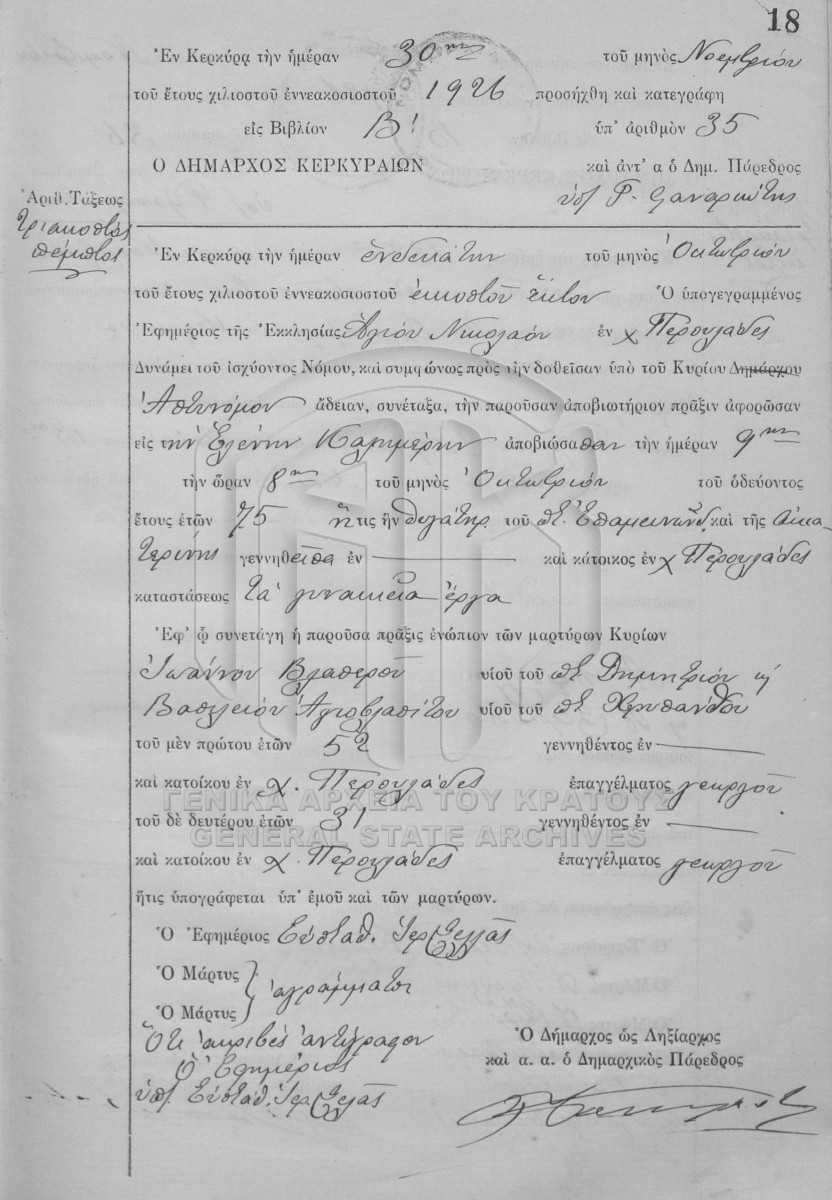 18
Ἐν Κερκύρᾳ τὴν ἡμέραν 30ην τοῦ μηνὸς Νοεμβρίου
τοῦ ἔτους χιλιοστοῦ ἐννεακοσιοστοῦ 1926 προσήχθη καὶ κατεγράφη
εἰς Βιβλίον Β! ὑπ' ἀριθμὸν 35
Ο ΔΗΜΑΡΧΟΣ ΚΕΡΚΥΡΑΙΩΝ καὶ ἀντ' α ὁ Δημ. Πάρεδρος
ὑπ/
Ἀριθ. Τάξεως
Τριακοστὸς
πέμπτος
Ἐν Κερκύρᾳ τὴν ἡμέραν ἑνδεκάτην τοῦ μηνὸς Ὀκτωβρίου
τοῦ ἔτους χιλιοστοῦ ἐννεακοσιοστοῦ εἰκοστοῦ ἕκτου Ὁ ὑπογεγραμμένος
Ἐφημέριος τῆς Ἐκκλησίας Ἁγίου Νικολάου ἐν χ Περουλάδες
Δυνάμει τοῦ ἰσχύοντος Νόμου, καὶ συμφώνως πρὸς τὴν δοθεῖσαν ὑπὸ τοῦ Κυρίου Δημάρχου
Ἀστυνόμου ἄδειαν, συνέταξα, τὴν παροῦσαν ἀποβιωτήριον πρᾶξιν ἀφορῶσαν
εἰς τὴν Ἑλένην Καλημέρην ἀποβιώσασαν τὴν ἡμέραν 9ην
τὴν ὥραν 8ην τοῦ μηνὸς Ὀκτωβρίου τοῦ ὁδεύοντος
ἔτους ἐτῶν 75 ἥτις ἦν θυγάτηρ τοῦ ποτ. Ἐπαμεινώνδ. καὶ τῆς Αἰκα
τερίνης γεννηθεῖσα ἐν καὶ κάτοικος ἐν χ Περουλάδες
καταστάσεως τὰ γυναικεῖα ἔργα
Ἐφ' ᾧ συνετάγη ἡ παροῦσα πρᾶξις ἐνώπιον τῶν μαρτύρων Κυρίων
Ἰωάννου Βλασεροῦ υἱοῦ τοῦ ποτ Δημητρίου κ
Βασιλείου Ἀγιοβλασίτου υἱοῦ τοῦ ποτ Χρυσάνθου
τοῦ μὲν πρώτου ἐτῶν 52 γεννηθέντος ἐν
καὶ κατοίκου ἐν χ. Περουλάδες ἐπαγγέλματος γεωργοῦ
ΓΕΝΙΚΑ ΑΡΧΕΙΑ ΤΟΥ ΚΡΑΤΟΥΣ
τοῦ δὲ δευτέρου ἐτῶν 31 γεννηθέντος ἐν
GENERAL STATE ARCHIVES
καὶ κατοίκου ἐν χ. Περουλάδες ἐπαγγέλματος γεωργοῦ
ἥτις ὑπογράφεται ὑπ' ἐμοῦ καὶ τῶν μαρτύρων.
Ὁ Ἐφημέριος Εὐσταθ. Ἱερ.
Ὁ Μάρτυς
ἀγράμματοι
Ὁ Μάρτυς
Ὅτι ἀκριβὲς ἀντίγραφον
Ὁ Ἐφημέριος
ὑπ/ Εὐσταθ. Ἱερ.
Ὁ Δήμαρχος ὡς Ληξίαρχος
καὶ α. α. ὁ Δημαρχικὸς Πάρεδρος